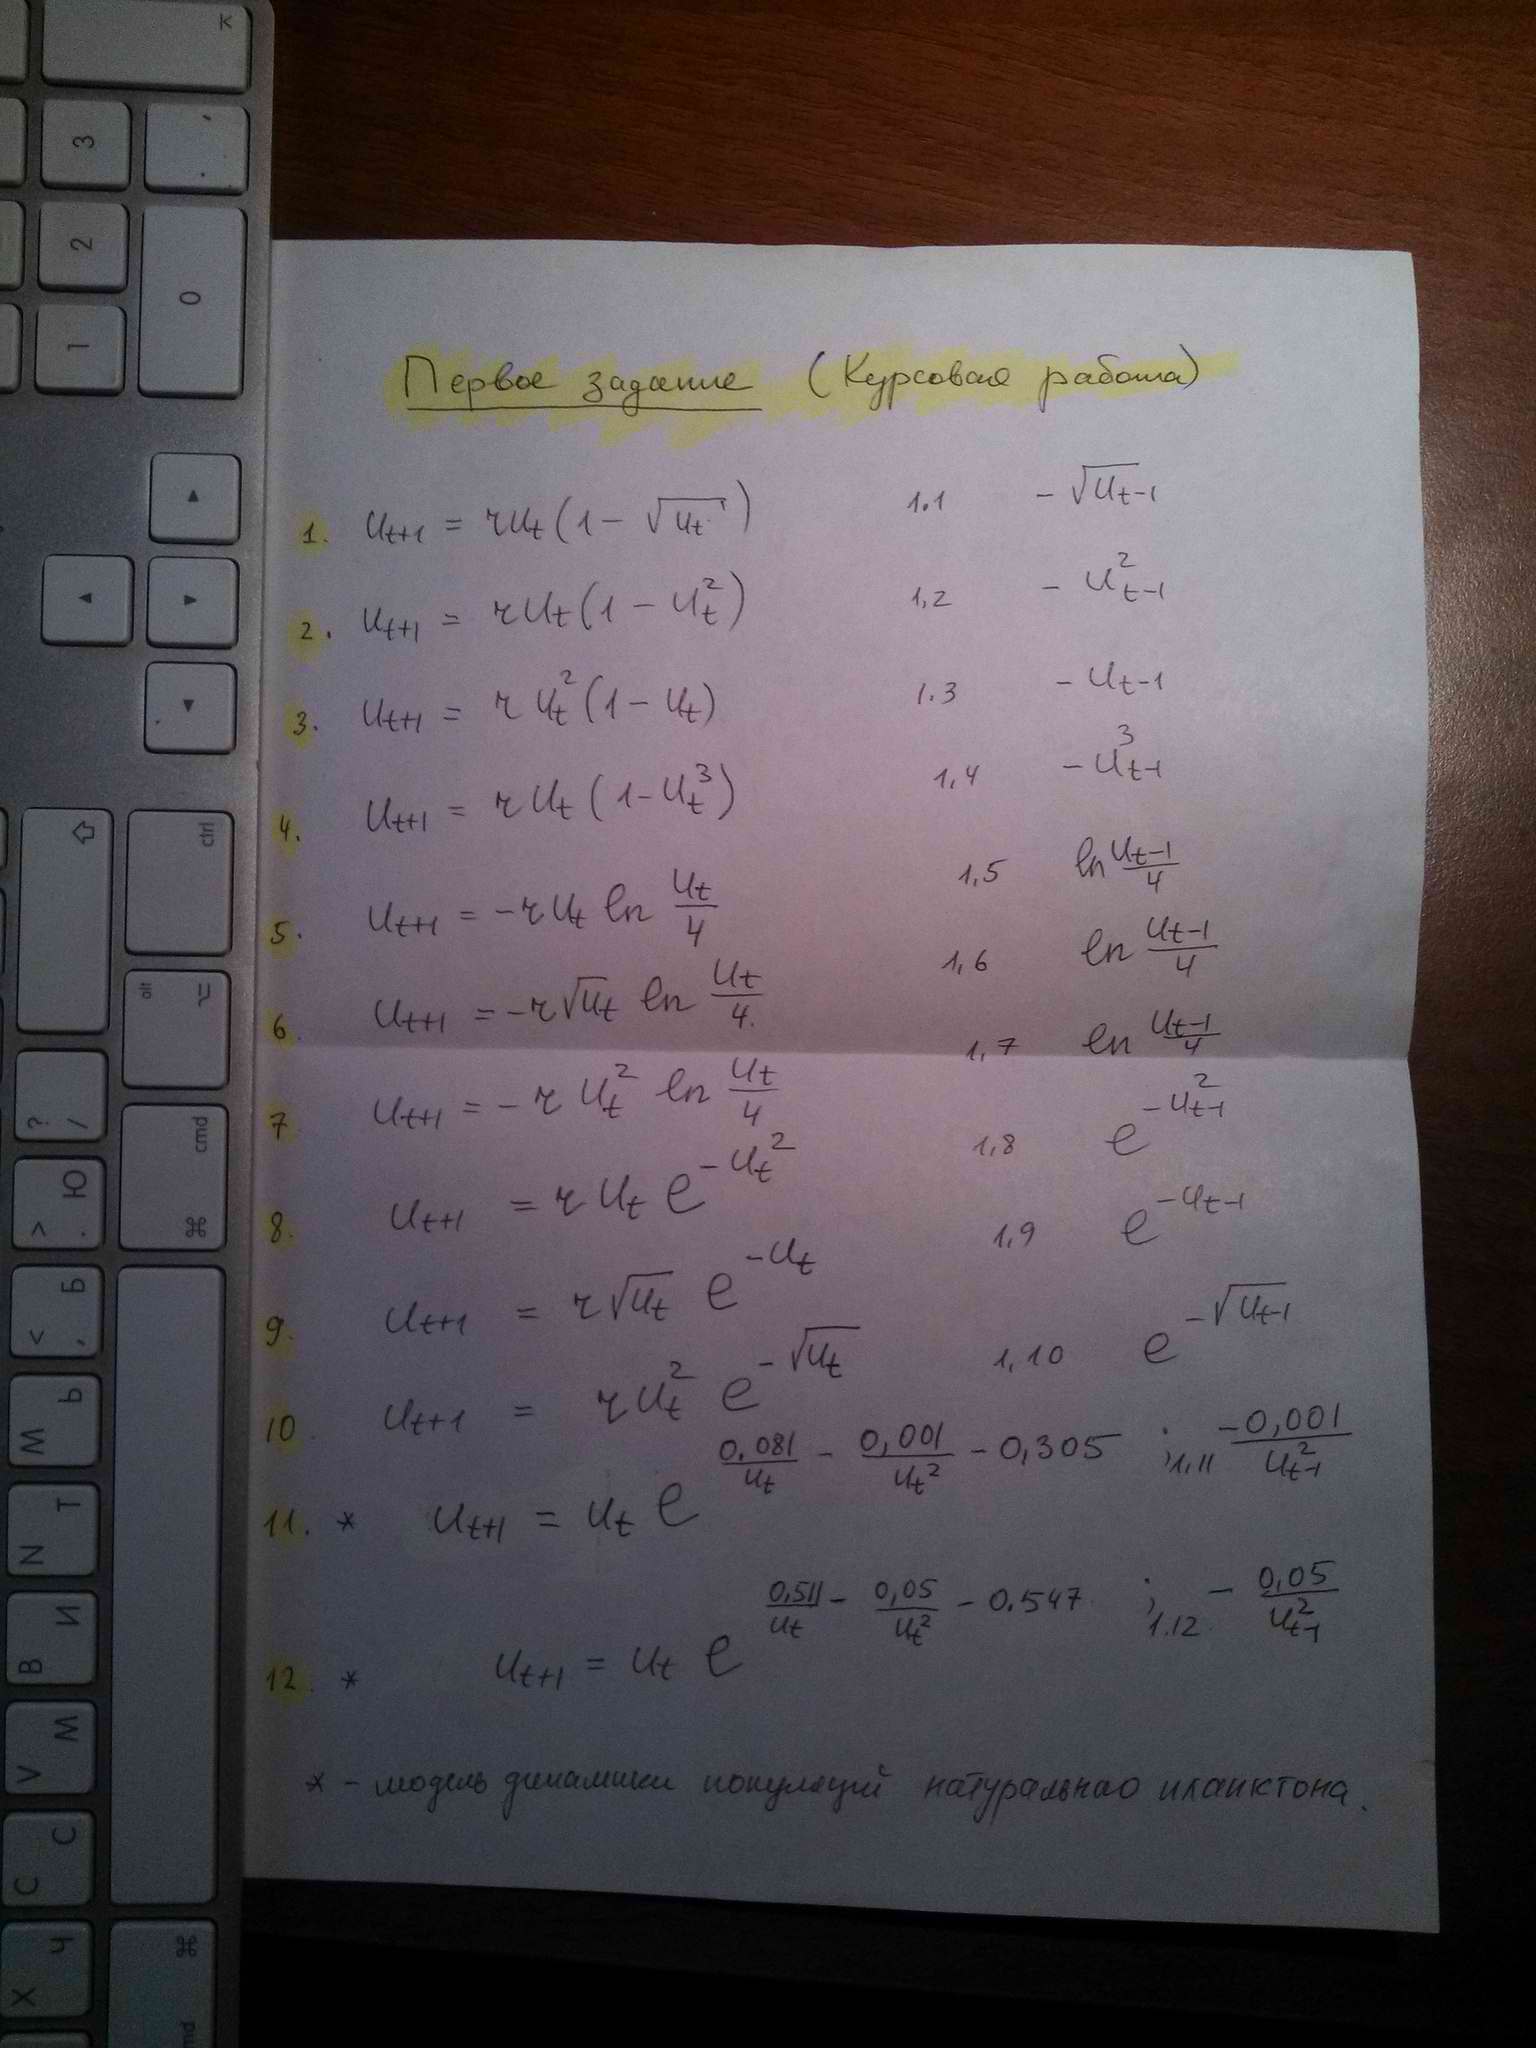 Первое задание (Курсовая работа)
1. u_{t+1} = r u_t (1 - √u_t) 1.1 - √u_{t-1}
2. u_{t+1} = r u_t (1 - u_t^2) 1,2 - u_{t-1}^2
3. u_{t+1} = r u_t^2 (1 - u_t) 1.3 - u_{t-1}
4. u_{t+1} = r u_t (1 - u_t^3) 1,4 - u_{t-1}^3
5. u_{t+1} = - r u_t ln u_t/4 1,5 ln u_{t-1}/4
6. u_{t+1} = - r √u_t ln u_t/4. 1,6 ln u_{t-1}/4
7. u_{t+1} = - r u_t^2 ln u_t/4 1,7 ln u_{t-1}/4
8. u_{t+1} = r u_t e^{-u_t^2} 1,8 e^{-u_{t-1}^2}
9. u_{t+1} = r √u_t e^{-u_t} 1,9 e^{-u_{t-1}}
10. u_{t+1} = r u_t^2 e^{-√u_t} 1,10 e^{-√u_{t-1}}
11. * u_{t+1} = u_t e^{0.081/u_t - 0,001/u_t^2 - 0,305} ; 1,11 -0,001/u_{t-1}^2
12. * u_{t+1} = u_t e^{0,511/u_t - 0,05/u_t^2 - 0.547} ; 1.12. - 0,05/u_{t-1}^2
* - модель динамики популяций натурального планктона.
K
3
.
,
2
0
1
ctrl
alt
⌥
?
/
cmd
⌘
>
.
Ю
<
,
Б
M
Ь
N
Т
B
И
V
М
C
С
X
Ч
⌘